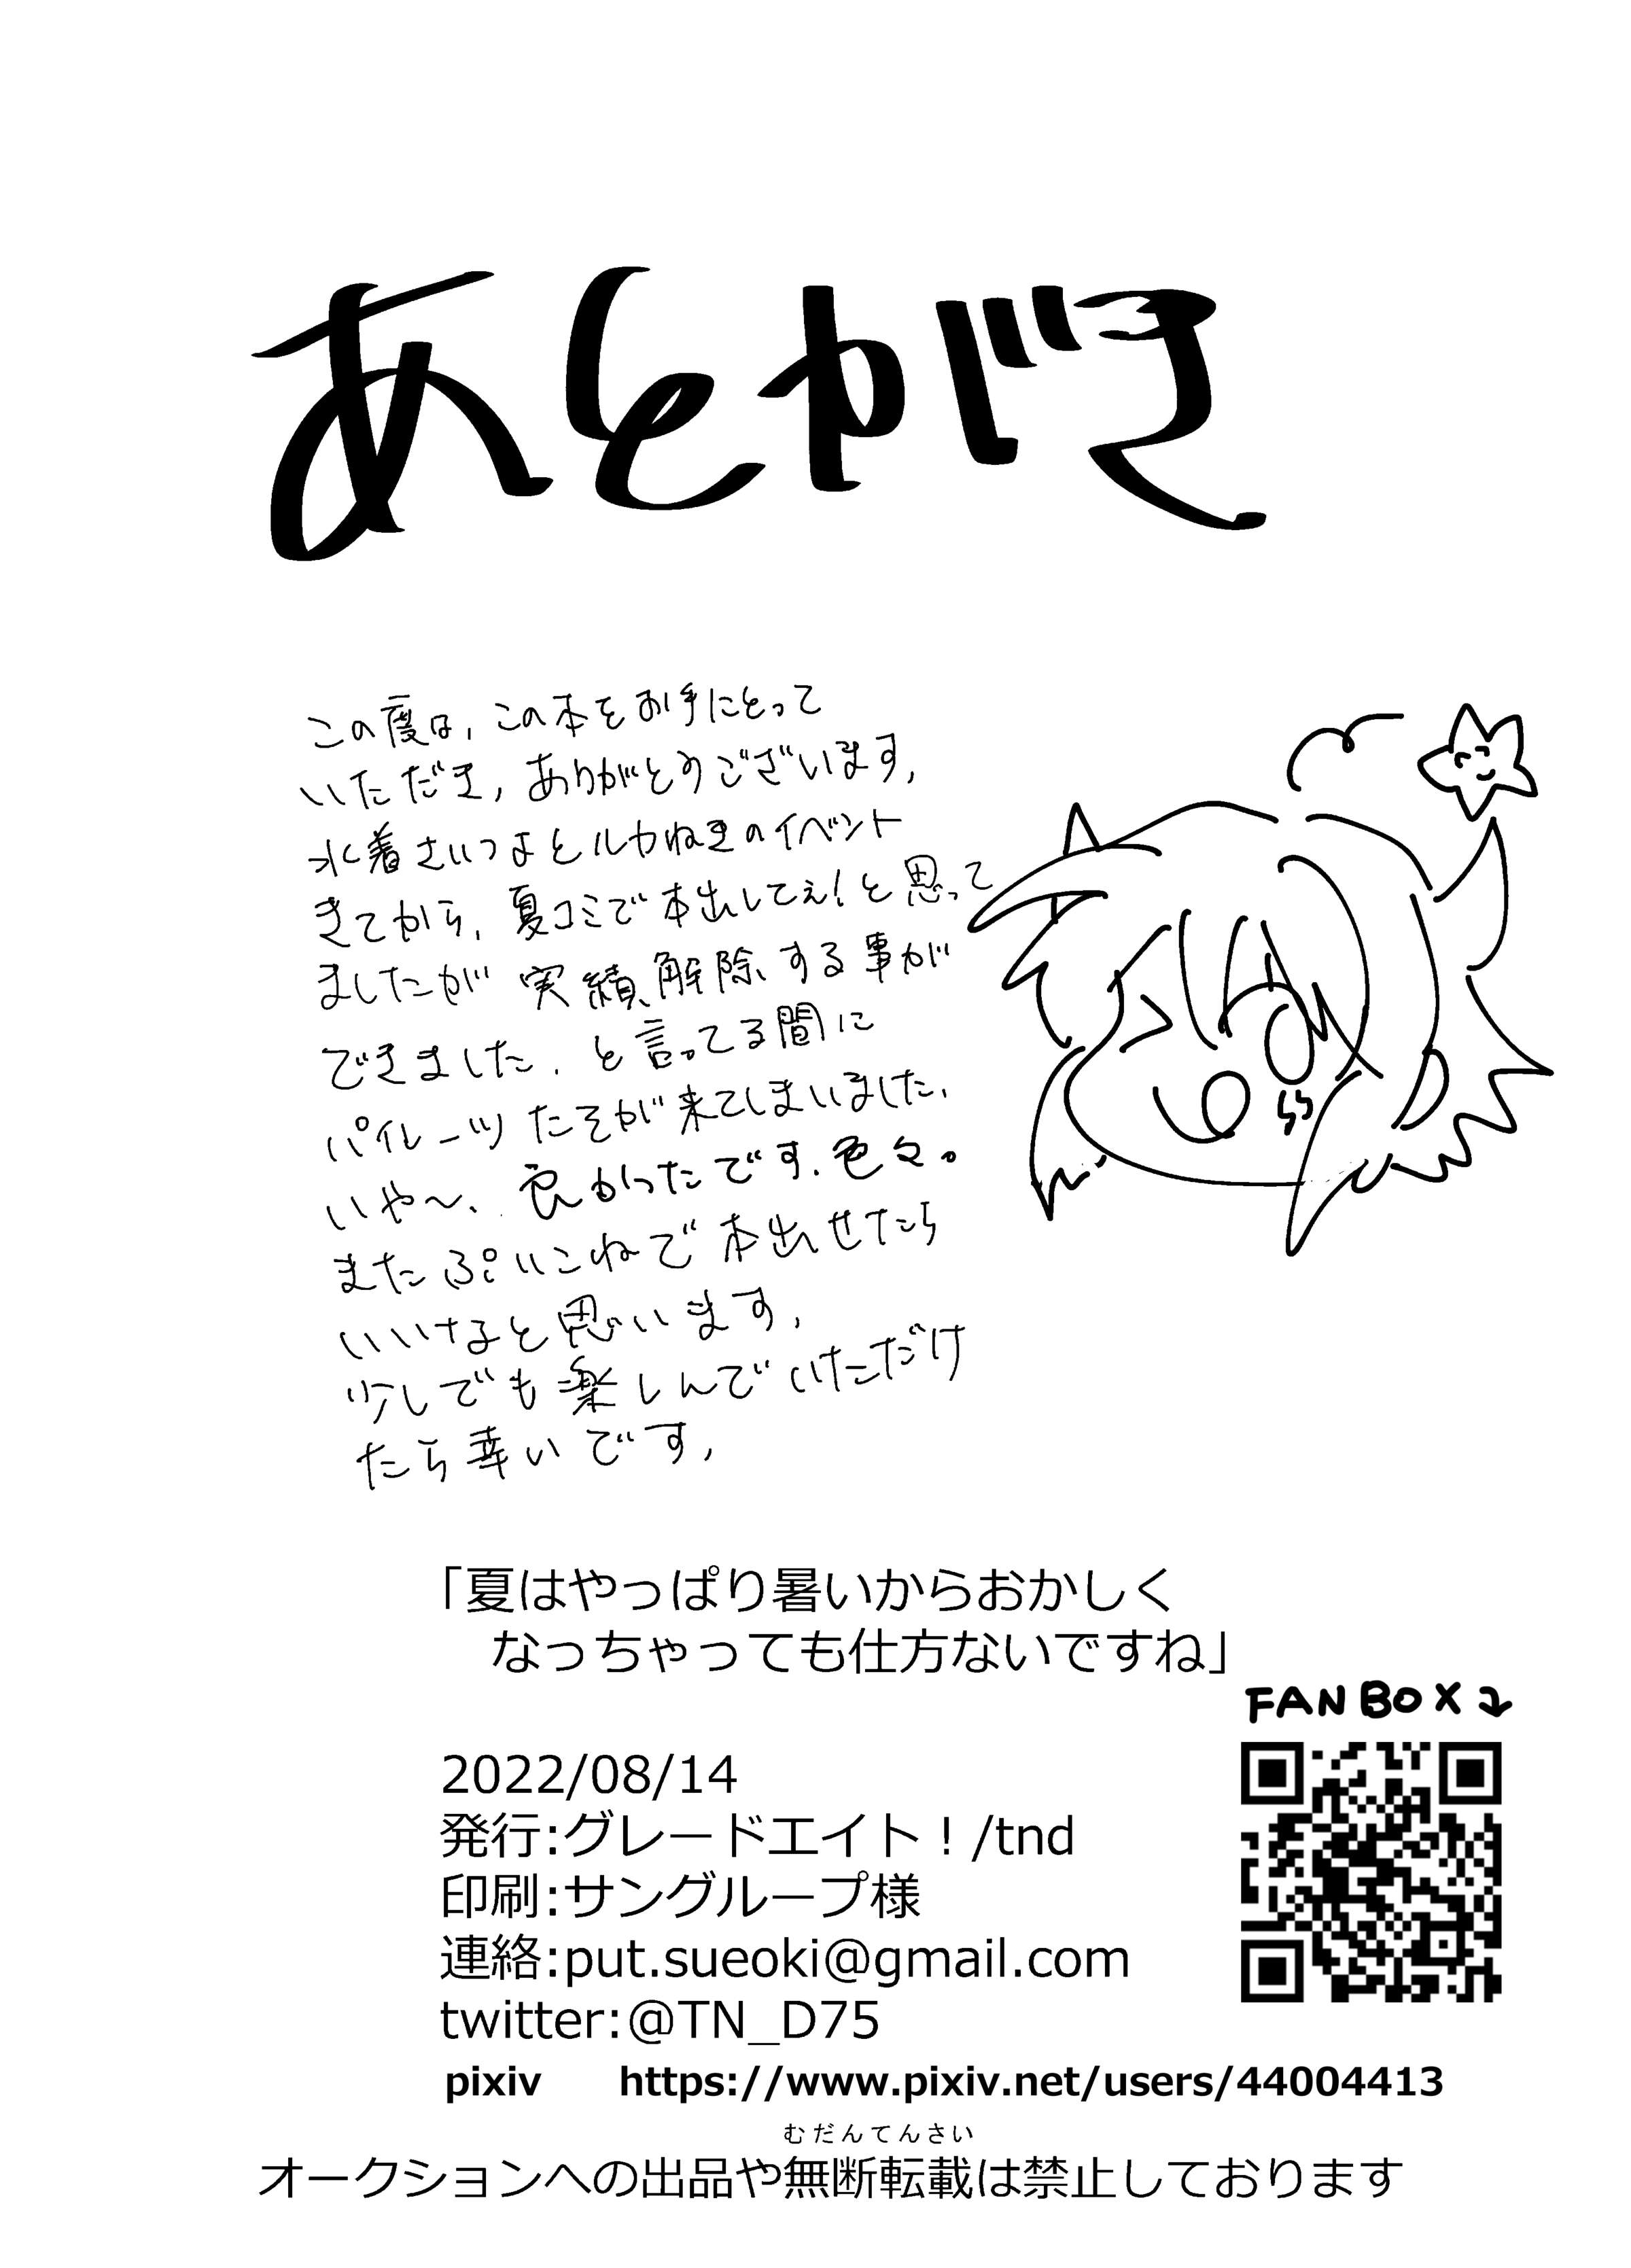 あとがき
この度は、この本をお手にとって
いただき、ありがとうございます、
水着さいつよとルカねきのイベント
きてから、夏コミで本出してぇ!と思って
ましたが実績解除する事が
できました、と言ってる間に
パイレーツたそが来てしまいました、
いや〜、良かったです、色々。
またぷいこねで本出せたら
いいなと思います、
少しでも楽しんでいただけ
たら幸いです、
「夏はやっぱり暑いからおかしく
なっちゃっても仕方ないですね」
FANBOX
2022/08/14
発行:グレードエイト!/tnd
印刷:サングループ様
連絡:put.sueoki@gmail.com
twitter:@TN_D75
pixiv https://www.pixiv.net/users/44004413
むだんてんさい
オークションへの出品や無断転載は禁止しております